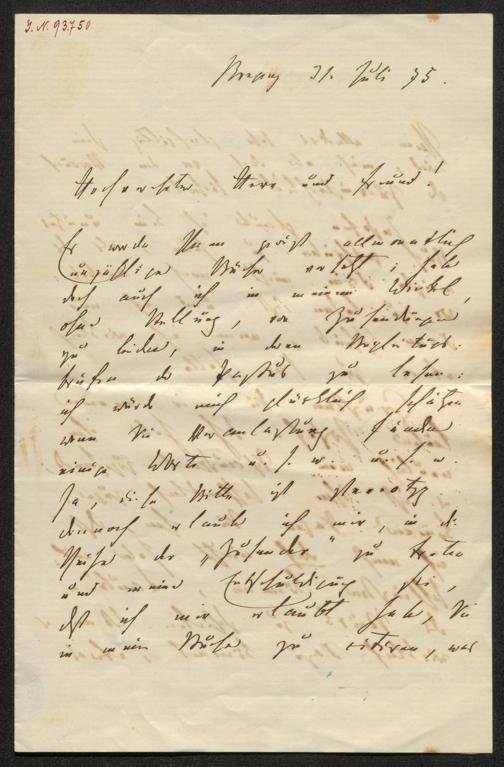 J. N. 93.750
31. Juli 75.
Hochverehrter Herr und Freund!
Es werden Ihnen gewiß allmonatlich
unzählige Bücher ; habe
doch auch ich in meinem Winkel,
ohne Stellung, von Zusendungen
zu leiden, in deren Begleitungs-
briefen der Passus zu lesen:
ich würde mich glücklich schätzen
wenn Sie Veranlassung fänden
einige Worte u. s. w. u. s. w.
Ja, diese Bitte ist stereotyp.
dennoch erlaube ich mir, in die
Reihe der „Zusender“ zu treten
und meine Entschuldigung sei,
daß ich mir erlaubt habe, Sie
in meinem Buche zu citiren, was